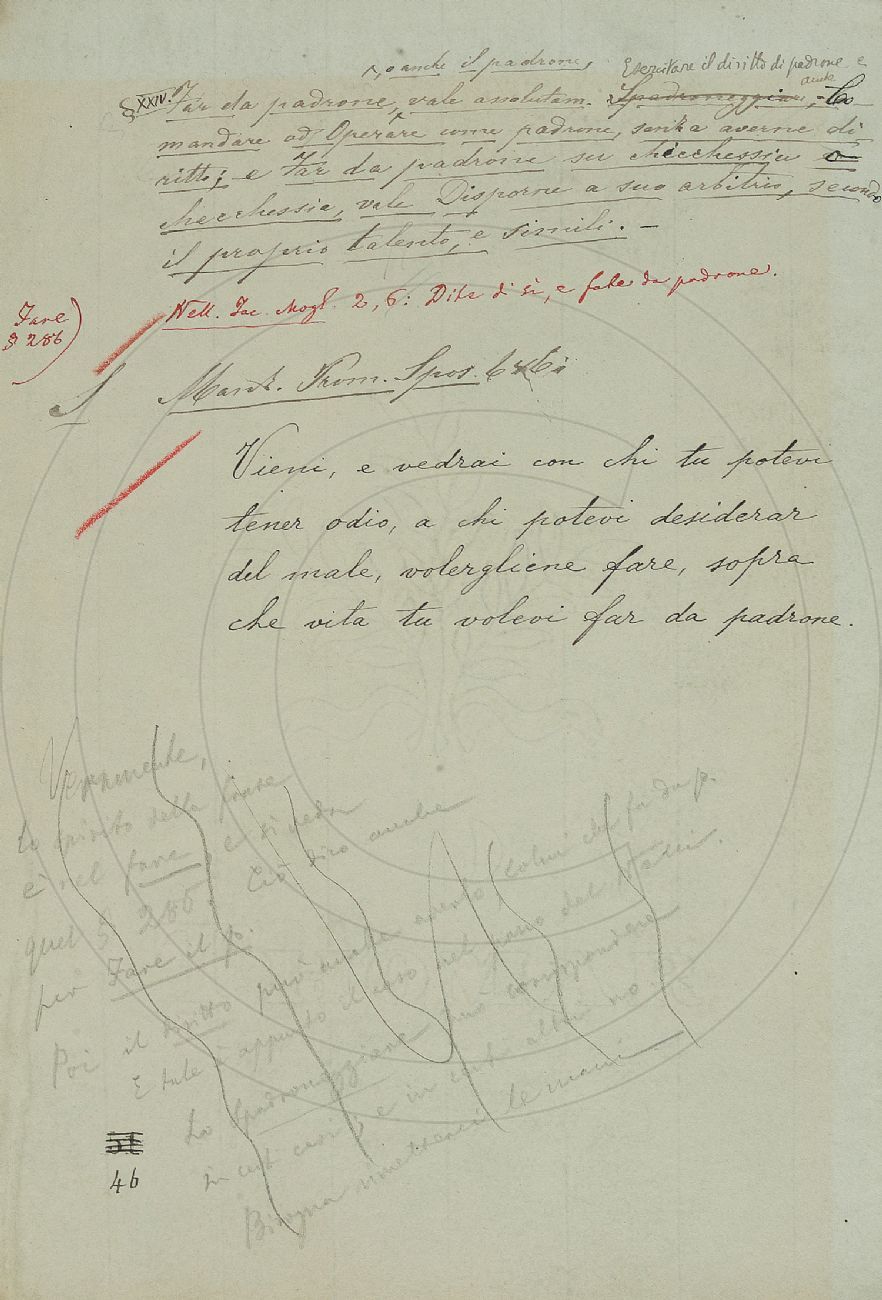 ^, o anche il padrone, Esercitare il diritto di padrone e
anche
§ XXIV. Far da padrone, vale assolutam. Spadroneggiare, Co
mandare od Operare come padrone, senza averne di
ritto; e Far da padrone su chicchessia o
checchessia, vale Disporne a suo arbitrio, secondo
il proprio talento, e simili. —
Fare
§ 286
Nell. Iac. Mogl. 2, 6: Dite di sì, e fate da padrone.
S Manz. Prom. Spos.
Vieni, e vedrai con chi tu potevi
tener odio, a chi potevi desiderar
del male, volergliene fare, sopra
che vita tu volevi far da padrone.
Veramente,
lo spirito della frase
è nel fare, e si veda
quel § 286. Ciò dico anche
per Fare il p.
Poi il diritto può anche averlo, colui che fa da p.
E tale è appunto il caso, nel passo del Nelli.
Lo Spadroneggiare può corrispondere
in certi casi, e in certi altri no.
Bisogna rimetterci le mani —
46